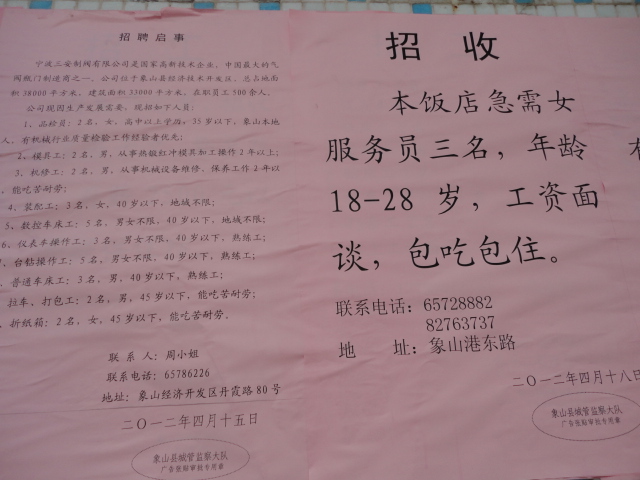 招聘启事
宁波三安制阀有限公司是国家高新技术企业，中国最大的气
阀门制造商之一。公司位于象山县经济技术开发区，总占地面
积38000平方米，建筑面积33000平方米，在职员工500余人。
公司现因生产发展需要，现招如下人员：
1、品检员：2名，女，高中以上学历，35岁以下，象山本地
人、有机械行业质量检验工作经验者优先；
2、模具工：2名，男，从事热锻红冲模具加工操作2年以上；
3、机修工：2名，男，从事机械设备维修、保养工作2年以
，能吃苦耐劳；
4、装配工：3名，女，40岁以下，地域不限；
5、数控车床工：5名，男女不限，40岁以下，地域不限；
6、仪表车操作工：3名，男女不限，40岁以下，熟练工；
台钻操作工：5名，男女不限，40岁以下，熟练工；
普通车床工：3名，男，40岁以下，熟练工；
拉车、打包工：2名，男，45岁以下，能吃苦耐劳；
折纸箱：2名，女，45岁以下，能吃苦耐劳。
联 系 人：周小姐
联系电话：65786226
地址：象山经济开发区丹霞路80号
二〇一二年四月十五日
象山县城管监察大队
广告张贴审批专用章
招 收
本饭店急需女
服务员三名，年龄
18-28 岁，工资面
谈，包吃包住。
联系电话：65728882
82763737
地 址：象山港东路
二〇一二年四月十八日
象山县城管监察大队
广告张贴审批专用章